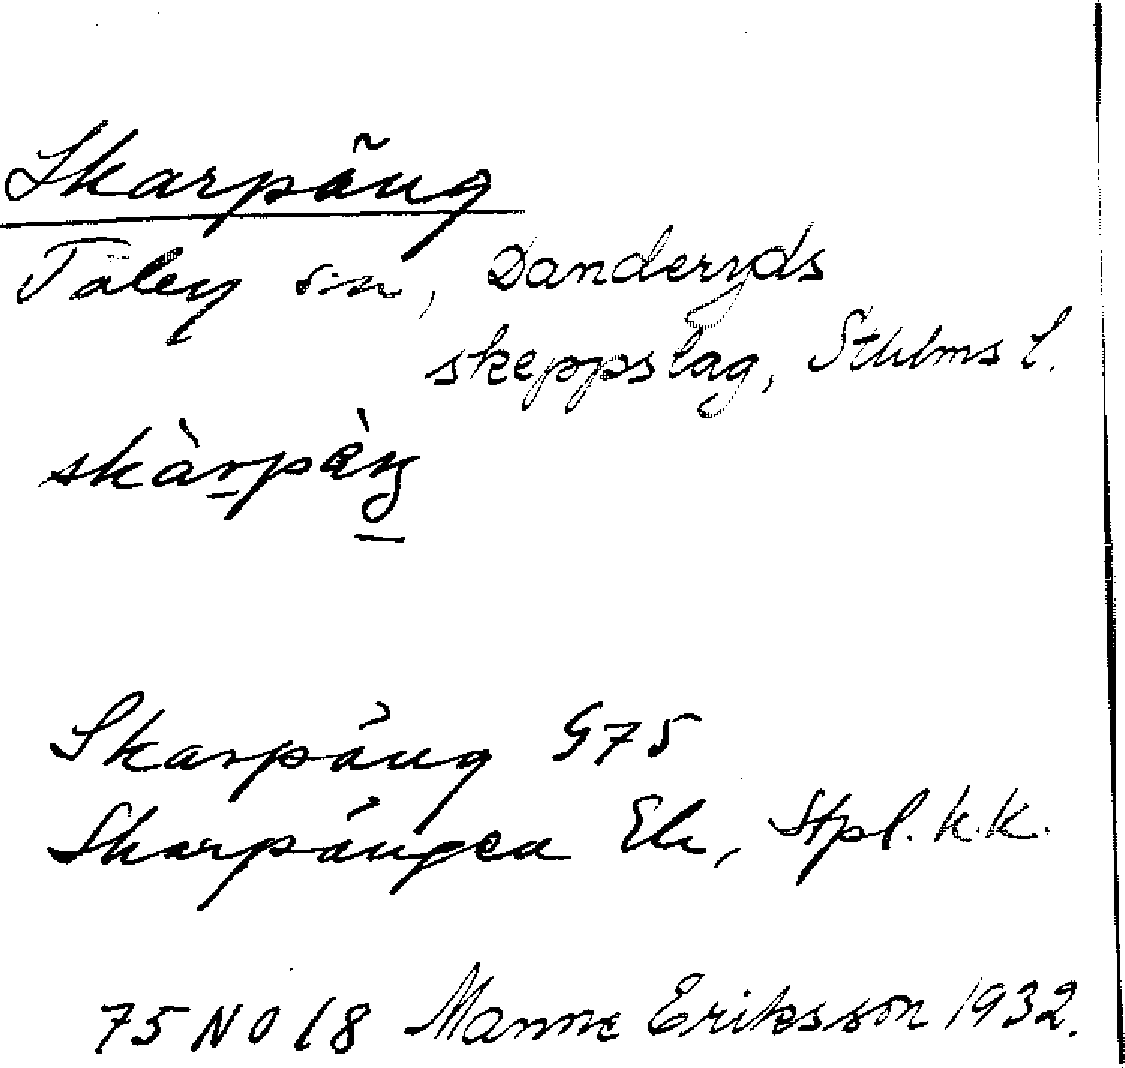 Skarpäng
Täby sn, Danderyds
skeppslag, Sthlms l.
skàrpàŋ
Skarpäng G75
Skarpängen Ek, Stpl. k.k.
75 NO 18 Manne Eriksson 1932.